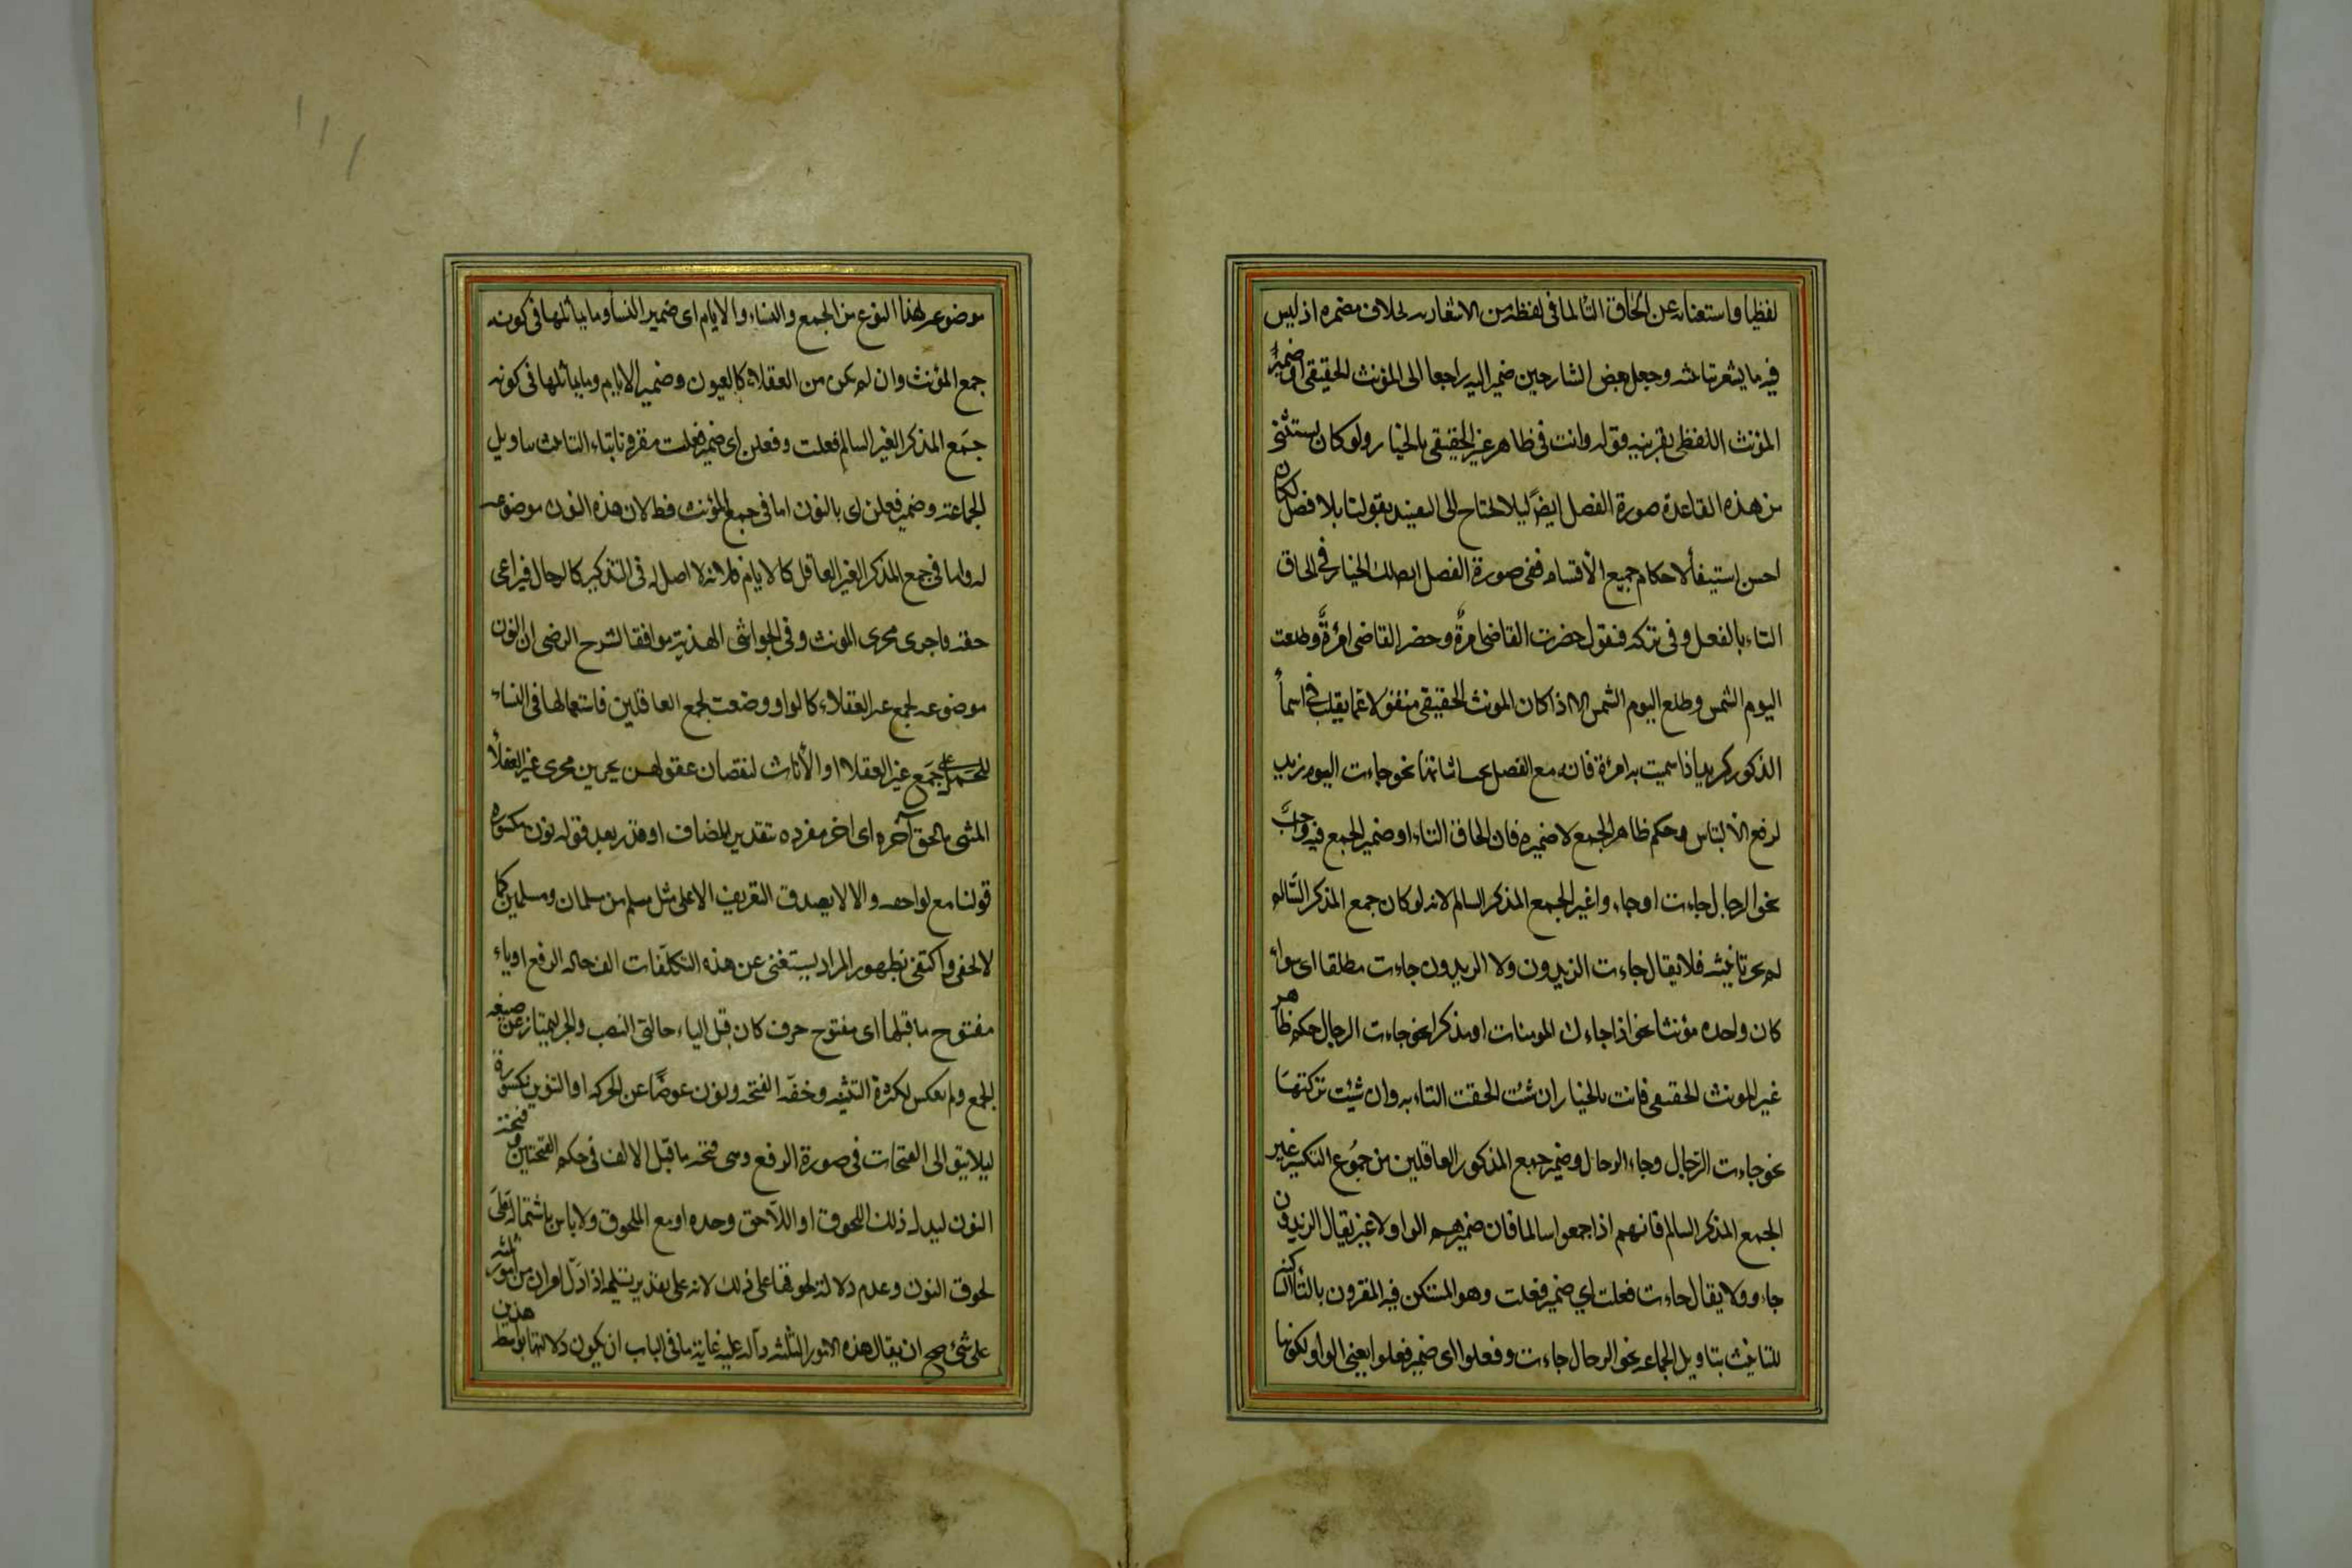 لفظيا واستغنائه عن الحاق التا لما فى لفظه من الاشعار به بخلاف مضمره اذ ليس
فيه ما يشعر بتانيثه وجعل بعض الشارحين ضمير اليه راجعا الى المؤنث الحقيقى او ضمير
المؤنث اللفظى بقرينة قوله وانت فى ظاهر غير الحقيقى بالخيار ولو كان يستثنى
من هذه القاعدة صورة الفصل ايضا ليلا يحتاج الى التقييد بقولنا بلا فصل لكان
احسن استيفاً لاحكام جميع الاقسام ففى صورة الفصل ايضا لك الخيار فى الحاق
التاء بالفعل وفى تركه فنقول حضرت القاضى امرة وحضر القاضى امرأة وطلعت
اليوم الشمس وطلع اليوم الشمس الا اذا كان المونث الحقيقى منقولا عما يغلب فى اسماً
الذكور كزيد اذا سميت به امرأة فانه مع الفصل يجب اثباتها نحو جاءت اليوم زيد
لرفع الالتباس وحكم ظاهر الجمع لا ضميره فان الحاق التاء او ضمير الجمع فيه واجب
نحو الرجال جاءت او جاءوا غير الجمع المذكر السالم لانه لو كان جمع المذكر السالم
لم يجز تانيثه فلا يقال جاءت الزيدون ولا الزيدون جاءت مطلقا اى سواء
كان واحده مؤنثا نحو اذا جاءك المومنات او مذكرا نحو جاءت الرجال حكم ظاهر
غير المونث الحقيقى فانت بالخيار ان شئت الحقت التاء به وان شئت تركتها
نحو جاءت الرجال وجاء الرجال وضمير جمع المذكور العاقلين من جموع التكسير غير
الجمع المذكر السالم فانهم اذا جمعوا سالما فان ضميرهم الواو لا غير يقال الزيدون
جاءوا ولا يقال جاءت فعلت اي ضمير فعلت وهو المستكن فيه المقرون بالتاً الساكنة
للتانيث بتاويل الجماعة نحو الرجال جاءت وفعلوا اى ضمير فعلوا يعنى الواو لكونها
موضوعة لهذا النوع من الجمع والنساء والايام اى ضمير النسا وما يماثلها فى كونه
جمع المؤنث وان لم يكن من العقلاء كالعيون وضمير الايام وما يماثلها فى كونه
جمع المذكر الغير السالم فعلت وفعلن اى ضمير فعلت مقرونا بتاء التانيث بتاويل
الجماعة وضمير فعلن اى بالنون اما فى جمع المؤنث فظ لان هذه النون موضوعة
له واما فى جمع المذكر الغير العاقل كالايام فلانه لا اصل له فى التذكير كالرجال فيراعى
حقه فاجرى مجرى المونث وفى الحواشى الهندية موافقا لشرح الرضى ان النون
موضوعة لجمع غير العقلاء كالواو وضعت لجمع العاقلين فاستعمالها فى النساء
للحمل على جمع غير العقلاء او الأناث لنقصان عقولهن يجرين مجرى غير العقلاً
المثنى ما لحق آخره اى اخر مفرده بتقدير المضاف او قدر بعد قوله نون مكسورة
قولنا مع لواحقه والا لا يصدق التعريف الا على مثل مسلم من مسلمان ومسلمين كما
لا يخفى واكتفى بظهور المراد يستغنى عن هذه التكلفات الف حالة الرفع او ياء
مفتوح ما قبلها اى مفتوح حرف كان قبل الياء حالتى النصب والجر ليمتاز عن صيغة
الجمع ولم يعكس لكثرة التثنية وخفة الفتحة ونون عوضاً عن الحركة او التنوين مكسورة
ليلا يتوالى الفتحات فى صورة الرفع وهى فتحة ما قبل الالف فى حكم الفتحتين وفتحة
النون ليدل ذلك اللحوق او اللاحق وحده او مع الملحوق ولا باس باشتماله على
لحوق النون وعدم دلالة لحوقها على ذلك لانه على تقدير تسليمه اذا دل امران من امور ثلثة
على شئ صح ان يقال هذه الامور الثلثة دالة عليه غاية ما فى الباب ان يكون دلالتها بواسطة هذين